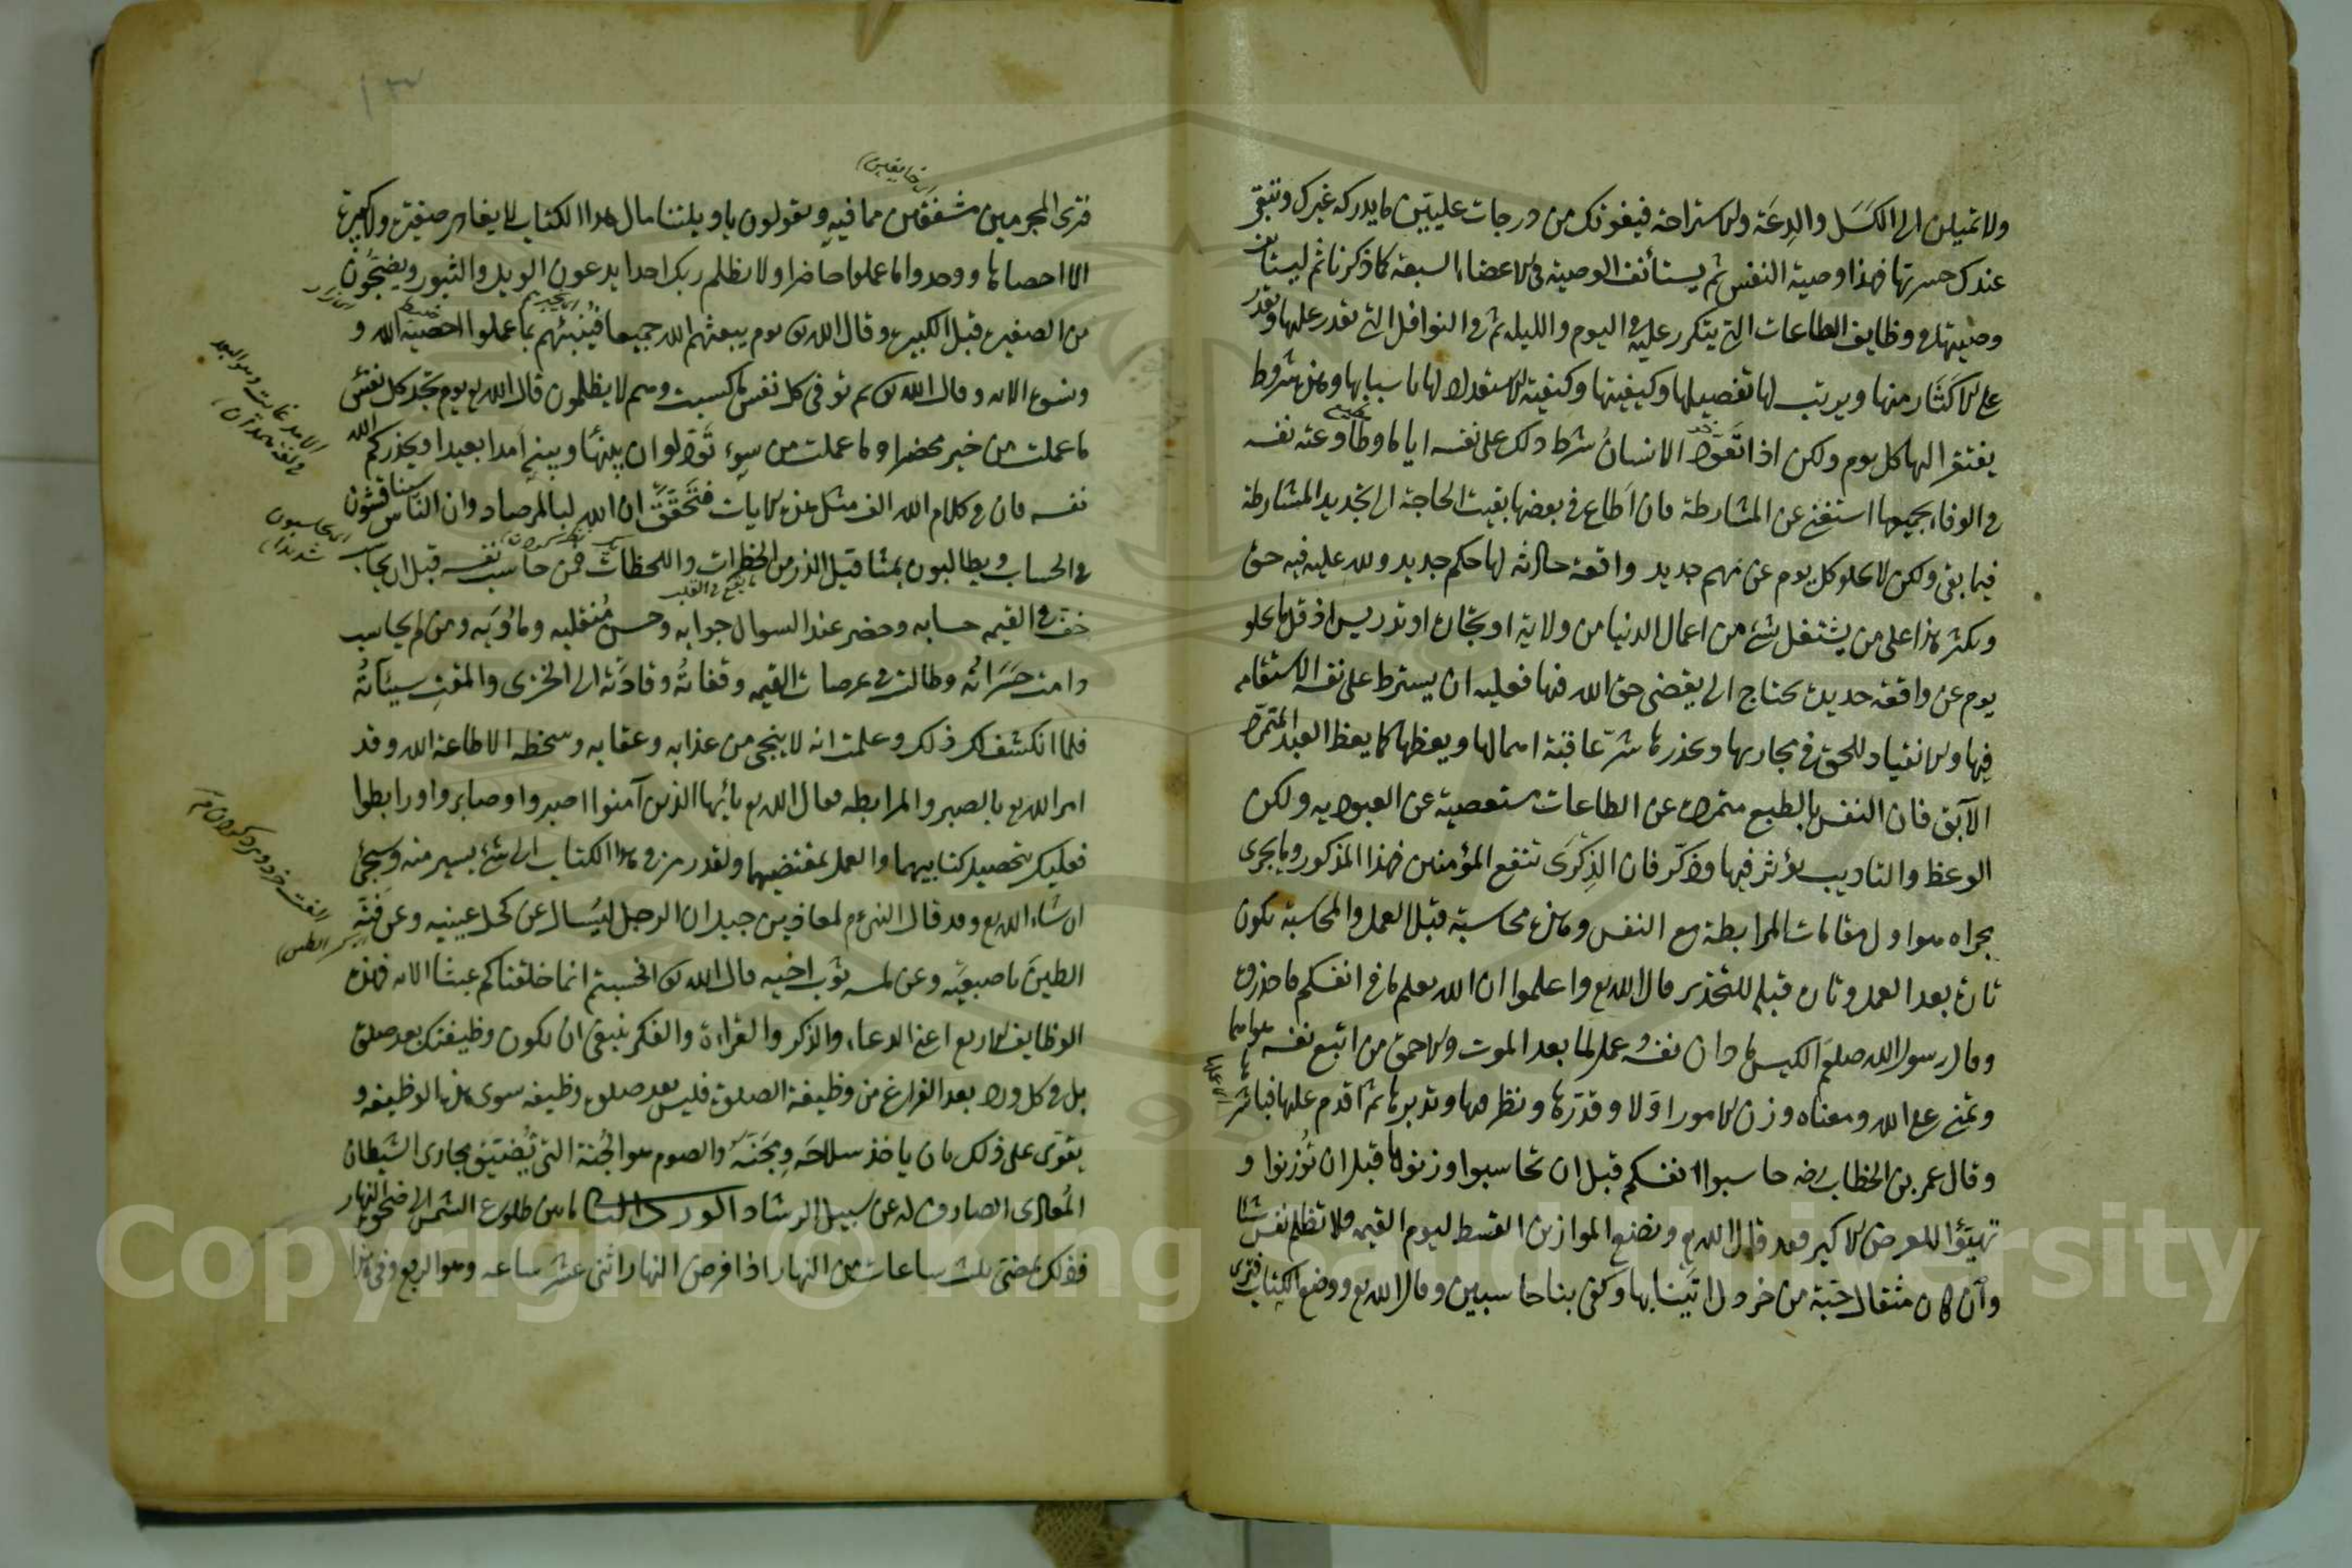 ولا تميلن الى الكسل والدعة والاستراحة فيفوتك من درجات عليين ما يدركه غيرك وتبقى
عندك حسرتها فهذا وصية النفس ثم يستأنف الوصية فى الاعضاء السبعة كما ذكرنا ثم ليستأنف
وصيتها فى وظايف الطاعات التى يتكرر عليه فى اليوم والليلة ثم فى النوافل التى تقدر عليها وتقدر
على الاكثار منها ويرتب لها تفصيلها وكيفيتها وكيفية الاستعداد لها باسبابها وهذه شروط
يفتقر اليها كل يوم ولكن اذا تعود الانسان شرط ذلك على نفسه اياما وطاوعته نفسه
فى الوفاء بجميعها استغنى عن المشارطة فان اطاع فى بعضها بقيت الحاجة الى تجديد المشارطة
فيما بقى ولكن لا يخلو كل يوم عن مهم جديد وواقعة حادثة لها حكم جديد ولله عليه فيه حق
ويكثر هذا على من يشتغل بشئ من اعمال الدنيا من ولاية او تجارة او تدريس اذ قل ما يخلو
يوم عن واقعة جديدة يحتاج الى يقضى حق الله فيها فعليه ان يشترط على نفسه الاستقامة
فيها والانقياد للحق فى مجاريها ويحذرها شر عاقبة امهالها ويعظها كما يعظ العبد المتمرد
الآبق فان النفس بالطبع متمردة عن الطاعات مستعصية عن العبودية ولكن
الوعظ والتاديب يؤثر فيها وذكر فان الذكرى تنفع المؤمنين فهذا المذكور وما يجرى
مجراه هو اول مقامات المرابطة مع النفس وهذه محاسبة قبل العمل والمحاسبة تكون
تارة بعد العمل وتارة قبله للتحذير قال الله تع واعلموا ان الله يعلم ما فى انفسكم فاحذروه
وقال رسول الله صلعم الكيس من دان نفسه وعمل لما بعد الموت والاحمق من اتبع نفسه هواها
وتمنى على الله ومعناه وزن الامور اولا وقدرها ونظر فيها وتدبرها ثم اقدم عليها فباشرها
وقال عمر بن الخطاب رضه حاسبوا انفسكم قبل ان تحاسبوا وزنوها قبل ان توزنوا و
تهيؤا للعرض الاكبر فقد قال الله تع ونضع الموازين القسط ليوم القيمة فلا تظلم نفس شيئا
وان كان مثقال حبة من خردل اتينا بها وكفى بنا حاسبين وقال الله تع ووضع الكتاب فترى
اى خايفين
فترى المجرمين مشفقين مما فيه ويقولون يا ويلتنا مال هذا الكتاب لا يغادر صغيرة ولا كبيرة
الا احصاها ووجدوا ما عملوا حاضرا ولا يظلم ربك احدا يدعون الويل والثبور ويضجون
من الصغيرة قبل الكبيرة وقال الله تع يوم يبعثهم الله جميعا فينبئهم بما عملوا احصيه الله و
ونسوه الاية وقال الله تع ثم توفى كل نفس ما كسبت وهم لا يظلمون قال الله تع يوم تجد كل نفس
ما عملت من خير محضرا وما عملت من سوء تود لو ان بينها وبينه امدا بعيدا ويحذركم الله
نفسه فان فى كلام الله الف مثل هذه الايات فتحقق ان الله لبالمرصاد وان الناس سيناقشون
فى الحساب ويطالبون بمثاقيل الذر من الخطرات واللحظات فمن حاسب نفسه قبل ان يحاسب
خف فى القيمة حسابه وحضر عند السوال جوابه وحسن منقلبه ومأويه ومن لم يحاسب
دامت حسراته وطالت فى عرصات القيمة وقفاته وقادته الى الخزى والمقت سيئاته
فلما انكشف لك ذلك وعلمت انه لا ينجى من عذابه وعقابه وسخطه الا طاعة الله وقد
امر الله تع بالصبر والمرابطة فقال الله تع يا ايها الذين آمنوا اصبروا وصابروا ورابطوا
فعليك بتحصيل كتابيهما والعمل بمقتضيهما ولقد رمز فى هذا الكتاب الى شئ يسير منه وسيجئ
ان شاء الله تع وقد قال النبى عم لمعاذ بن جبل ان الرجل ليسال عن كحل عينيه وعن فته
الطين باصبعيه وعن لمسه ثوب اخيه قال الله تع افحسبتم انما خلقناكم عبثا الاية فهذه
الوظايف الاربع اعنى الدعاء والذكر والقراءة والفكر ينبغى ان يكون وظيفتك بعد صلوة
بل فى كل ورد بعد الفراغ من وظيفة الصلوة فليس بعد صلوة وظيفة سوى هذه الوظيفة و
يقوى على ذلك بان ياخذ سلاحه ومجنه والصوم هو الجنة التى يضيق مجارى الشيطان
المعادى الصارف له عن سبيل الرشاد الورد الثانى ما بين طلوع الشمس الى ضحوة النهار
وذلك بمضى ثلث ساعات من النهار اذا فرض النهار اثنى عشر ساعة وهو الربع وفى هذا